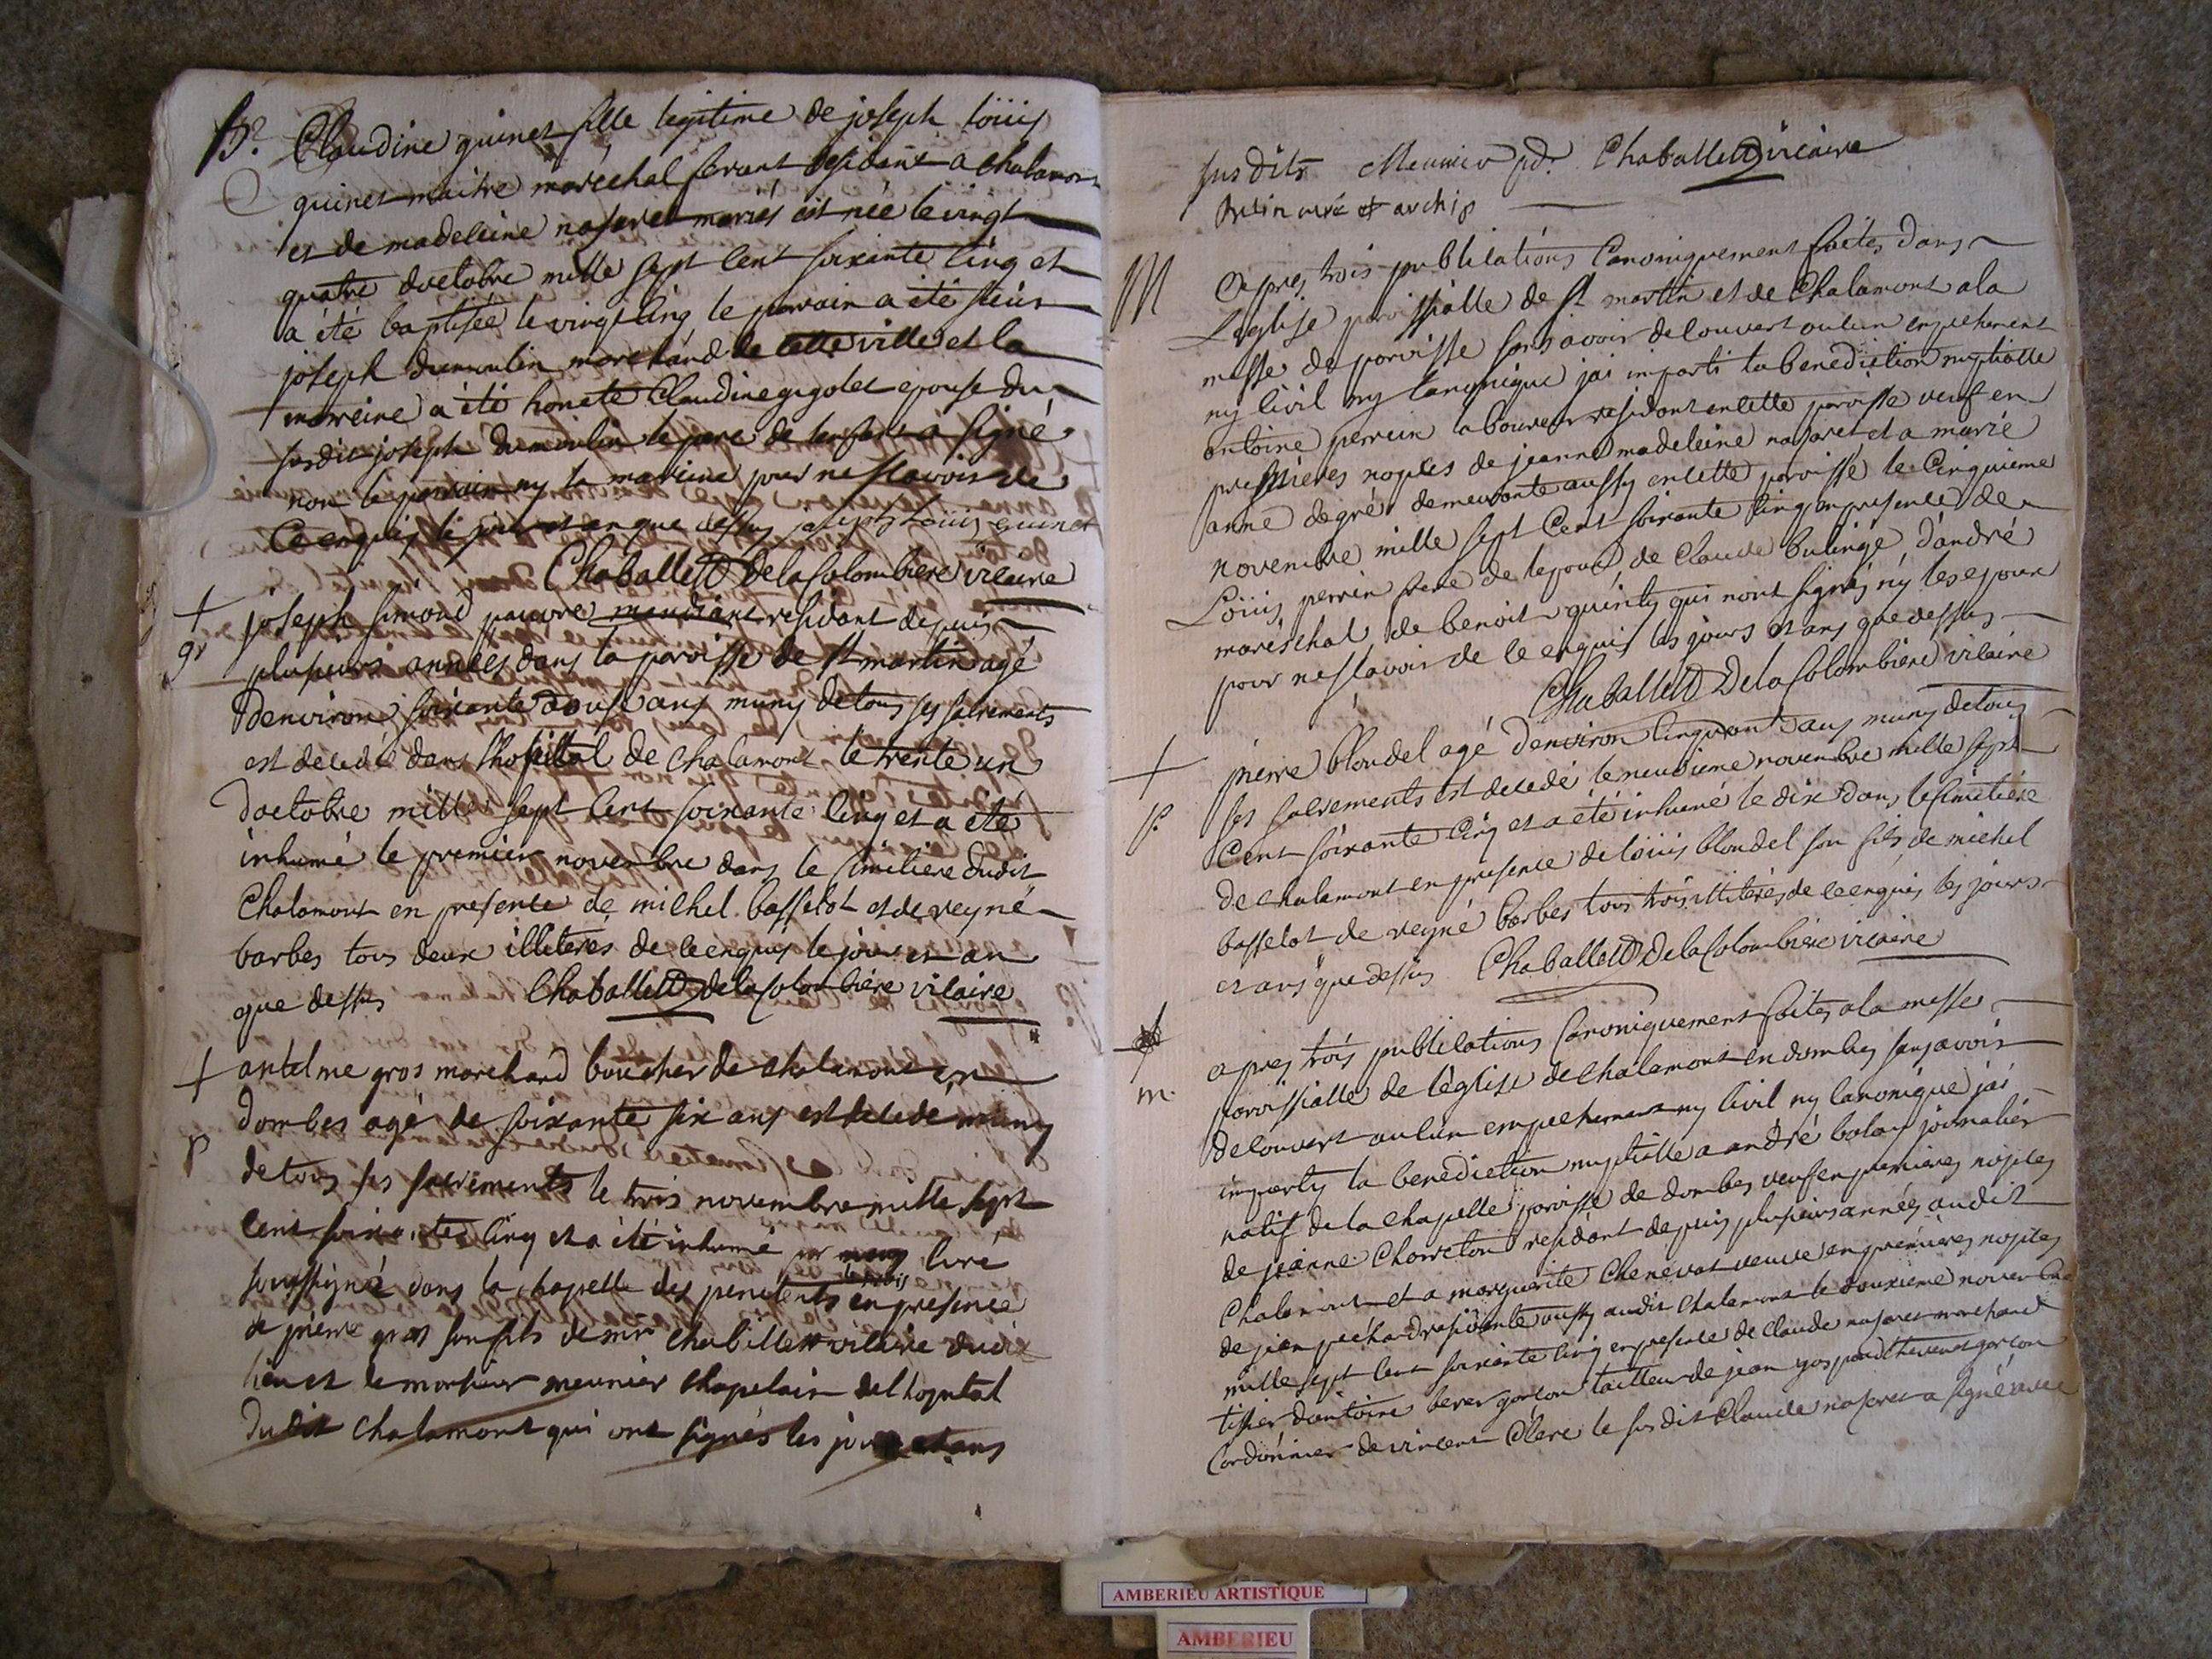 B.
Claudine quinet fille legitime de joseph loüis
quinet maitre maréchal ferant residant a chalamont
et de madeleine nasaret mariés est née le vingt
quatre doctobre mille sept cent soixante cinq et
a été baptisée le vingt cinq le parrain a été sieur
joseph dumoulin marchand de cette ville et la
marreine a été honete Claudine gigolet epouse du
susdit joseph dumoulin le pere de lenfant a signé
non le parrain ny la mareine pour ne scavoir de
ce enquis le jour et an que dessus joseph loüis quinet
Chaballett De la Colombiere vicaire
+
gr
joseph simond pauvre mendiant residant depuis
plusieurs années dans la paroisse de st martin agé
denviron soixante douse ans muny de tous ses sacrements
est decedé dans lhopital de chalamont le trente un
doctobre mille sept cent soixante cinq et a été
inhumé le premier novembre dans le simetiere dudit
Chalamont en presence de michel basselot et de reyné
barbes tous deux illiterés de ce enquis le jour et an
que dessus Chaballett de la Colombiere vicaire
+
p
antelme gros marchand boucher de chalamont en
dombes agé de soixante six ans est decedé muny
de tous ses sacrements le trois novembre mille sept
cent soixante cinq et a été inhumé par curé
soussigné dans la chapelle des penitents en presence
de pierre gros son fils de mr chaballett vicaire dudit
lieu et de monsieur meunier chapelain de lhopital
dudit chalamont qui ont signés les jour et ans
susdits Meunier pd. Chaballett vicaire
curé et archip
M
apres trois publications Canoniquement faites dans
Leglise paroissialle de st martin et de Chalamont a la
messe de paroisse sans avoir decouvert aucun empechement
ny civil ny canonique jai imparti la benediction nuptialle
antoine perrin laboureur residant en cette paroisse veuf en
premieres noples de jeanne madeleine nasaret et a marie
anne degré demeurante aussy en cette paroisse le cinquieme
novembre mille sept Cent soixante cinq en presence de
Loüis perrin frere de lepoux de Claude bulinge d'andré
maréschal de benoit quinty qui nont signés ny les epoux
pour ne scavoir de ce enquis les jours et ans que dessus
Chaballett De la Colombiere vicaire
+
p.
pierre blondel agé denviron cinquant ans muny de tous
ses sacrements est decedé le neuvieme novembre mille sept
Cent soixante cinq et a été inhumé le dix dans le simetiere
de chalamont en presence de loüis blondel son fils de michel
basselot de reyné barbes tous trois illiterés de ce enquis les jours
et ans que dessus Chaballett De la Colombiere vicaire
m.
apres trois publications Canoniquement faites a la messe
paroissialle de leglise de chalamont en dombes sans avoir
decouvert aucun empechement ny civil ny canonique jai
imparty la benediction nuptialle a andré balay journalier
natif de la chapelle paroisse de dombes veuf en premieres noples
de jeanne Charreton residant depuis plusieurs années audit
Chalamont et a marguerite Chenevat veuve en premieres noples
de jean pechard residante aussy audit chalamont le douxieme novembre
mille sept cent soixante cinq en presence de Claude nasaret marchand
tissier dantoine berer garçon tailleur de jean gaspard thevenet garçon
Cordonnier de vincent Clerc le susdit Claude nasaret a signé avec
AMBERIEU ARTISTIQUE
AMBERIEU